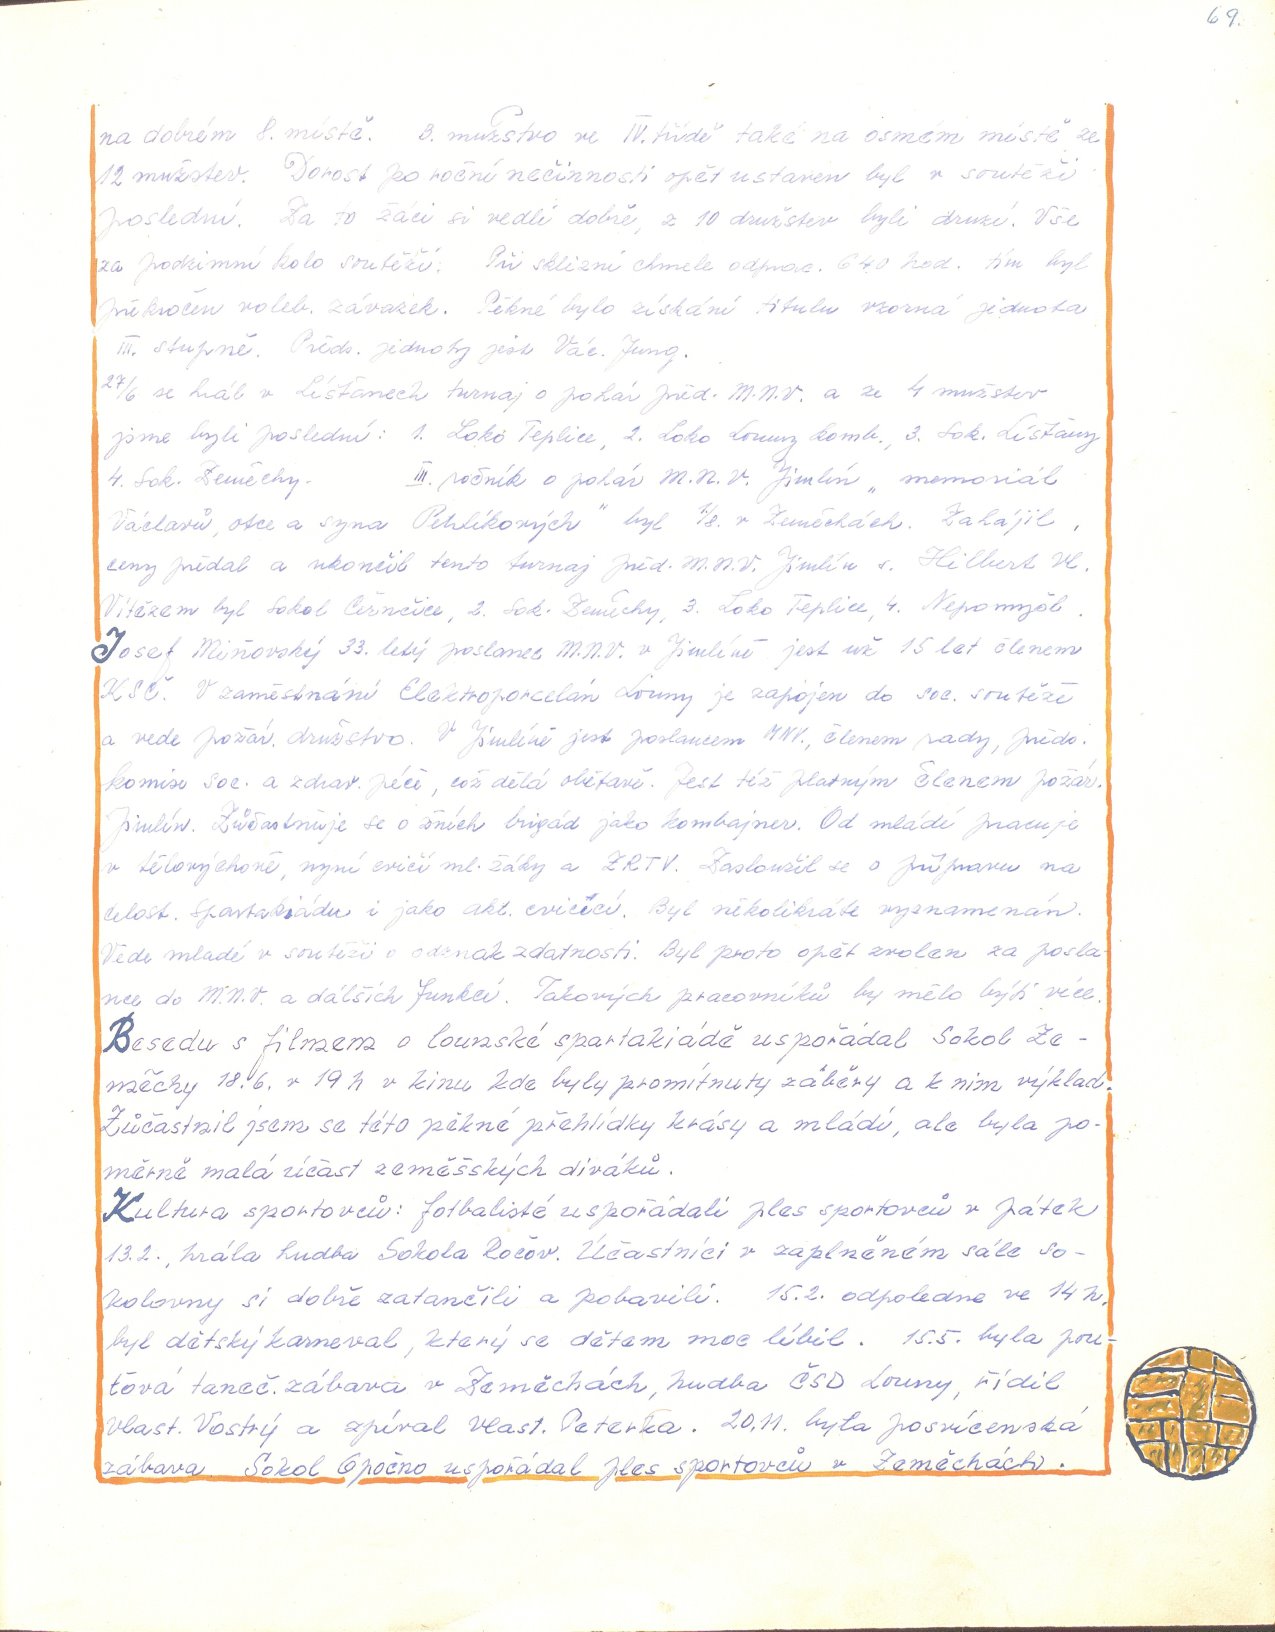 69.
na dobrém 8. místě. 3. mužstvo ve IV. třídě také na osmém místě ze
12 mužstev. Dorost po roční nečinnosti opět ustaven byl v soutěži
poslední. Za to žáci si vedli dobře, z 10 družstev byli druzí. Vše
za podzimní kolo soutěží. Při sklizni chmele odprac. 640 hod. tím byl
překročen voleb. závazek. Pěkné bylo získání titulu vzorná jednota
III. stupně. Předs. jednoty jest Vác. Jung.
27/6 se hrál v Líšťanech turnaj o pohár před. M.N.V. a ze 4 mužstev
jsme byli poslední: 1. Loko Teplice, 2. Loko Louny komb., 3. Sok. Líšťany
4. Sok. Zeměchy. III. ročník o pohár M.N.V. Jimlín „memoriál
Václavů, otce a syna Petrlíkových" byl 1/8. v Zeměchách. Zahájil,
ceny předal a ukončil tento turnaj před. M.N.V. Jimlín s. Hilbert Vl.
Vítězem byl Sokol Černčice, 2. Sok. Zeměchy, 3. Loko Teplice, 4. Nepomyšl.
Josef Miňovský 33. letý poslanec M.N.V. v Jimlíně jest už 15 let členem
KSČ. V zaměstnání Elektroporcelán Louny je zapojen do soc. soutěže
a vede požár. družstvo. V Jimlíně jest poslancem MNV., členem rady, předs.
komise soc. a zdrav. péče, což dělá obětavě. Jest též platným členem požár.
Jimlín. Zúčastňuje se o žních brigád jako kombajner. Od mládí pracuje
v tělovýchově, nyní cvičí ml. žáky a ZRTV. Zasloužil se o přípravu na
celost. Spartakiádu i jako akt. cvičící. Byl několikráte vyznamenán.
Vede mladé v soutěži o odznak zdatnosti. Byl proto opět zvolen za posla-
nce do M.N.V. a dálších funkcí. Takových pracovníků by mělo býti více.
Besedu s filmem o lounské spartakiádě uspořádal Sokol Ze-
měchy 18.6. v 19 h v kinu kde byly promítnuty záběry a k nim výklad.
Zůčastnil jsem se této pěkné přehlídky krásy a mládí, ale byla po-
měrně malá účast zeměšských diváků.
Kultura sportovců: fotbalisté uspořádali ples sportovců v pátek
13.2., hrála hudba Sokola Ročov. Účastníci v zaplněném sále So-
kolovny si dobře zatančili a pobavili. 15.2. odpoledne ve 14 h.
byl dětský karneval, který se dětem moc líbil. 15.5. byla pou-
ťová taneč. zábava v Zeměchách, hudba ČSD Louny, řídil
vlast. Vostrý a zpíval vlast. Peterka. 20.11. byla posvícenská
zábava. Sokol Opočno uspořádal ples sportovců v Zeměchách.